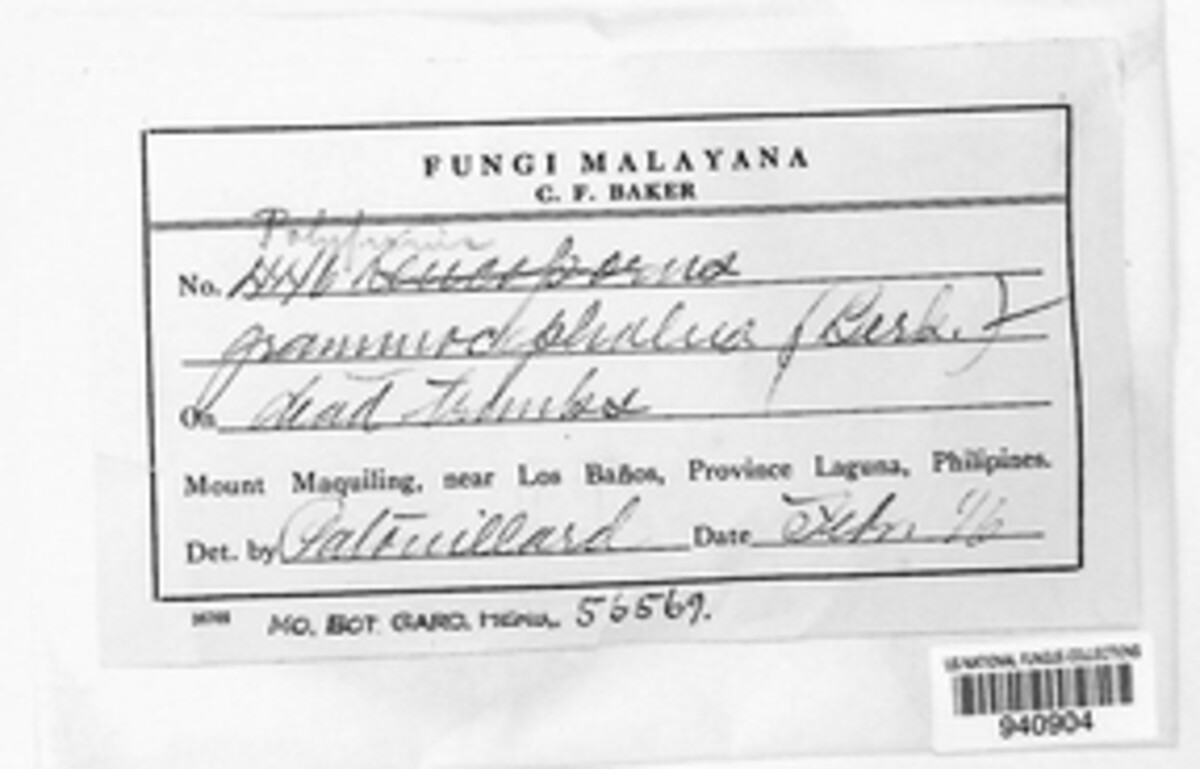 FUNGI MALAYANA
C. F. BAKER
Polyporus
No.
grammocephalus (Berk.)
On dead trunks
Mount Maquiling, near Los Baños, Province Laguna, Philipines.
Det. by Patouillard Date Feb. 16
MO. BOT. GARD. HERB. 56569.
US NATIONAL FUNGUS COLLECTIONS
940904